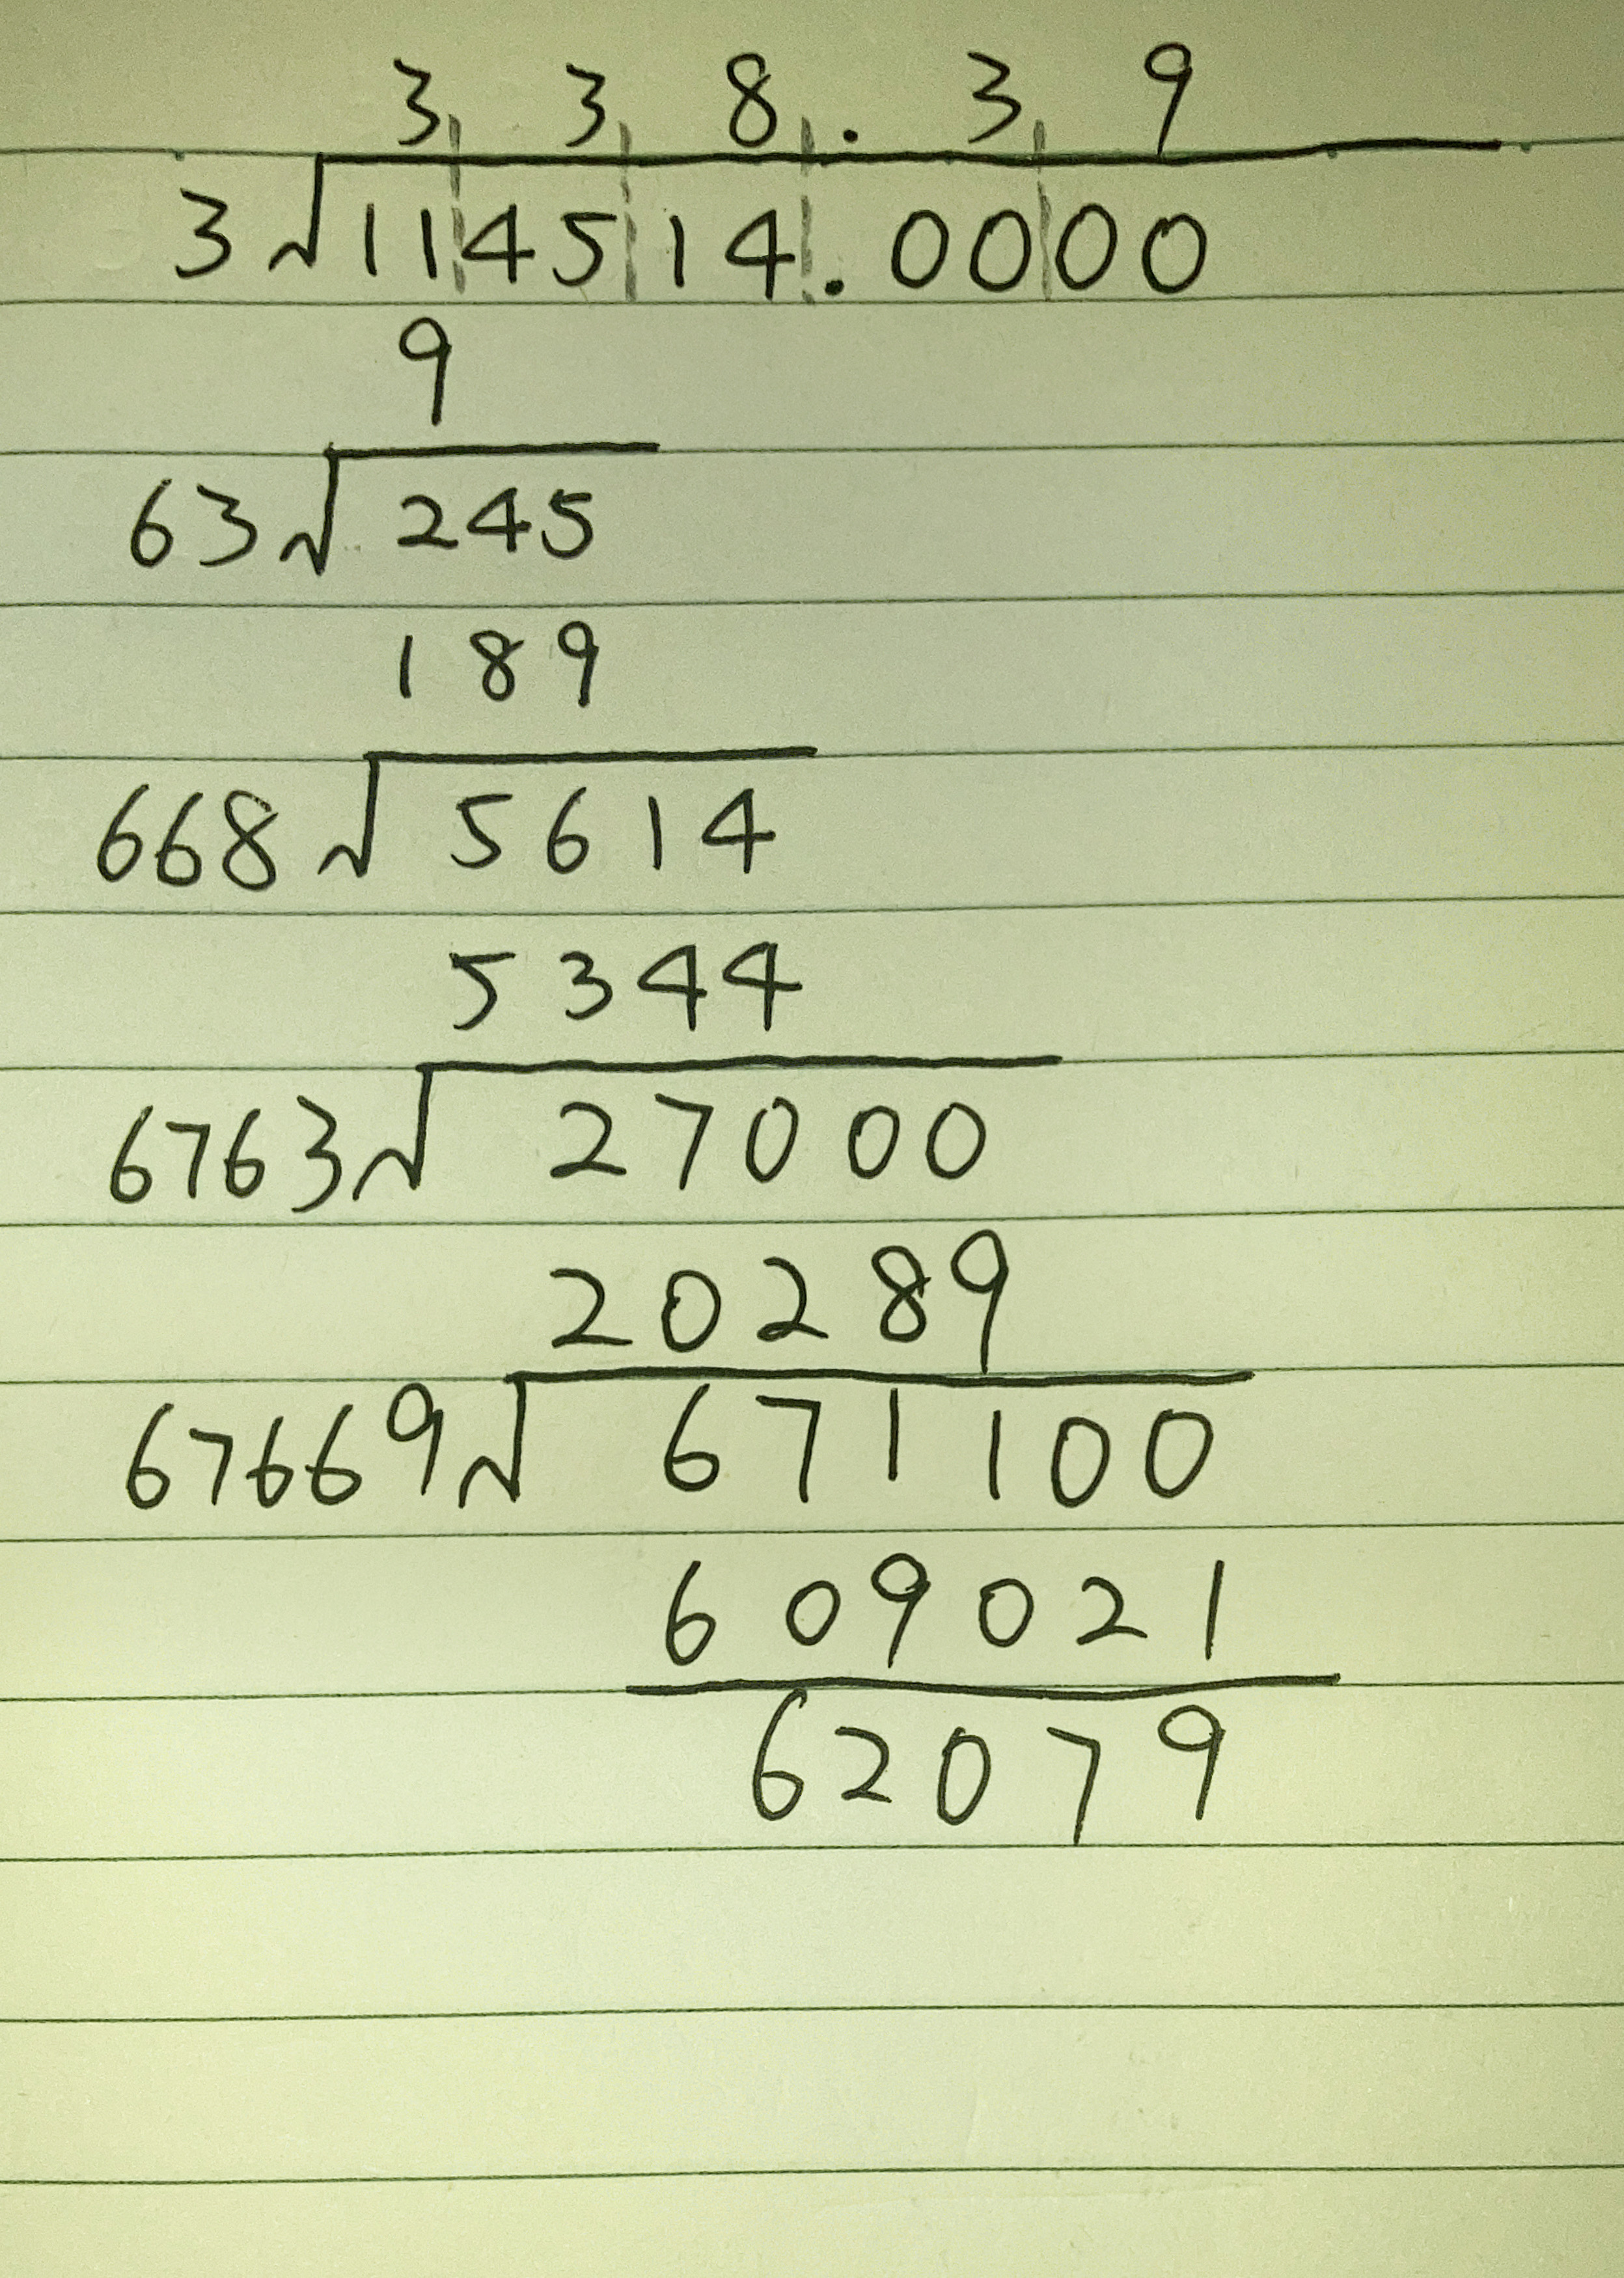 3 3 8 . 3 9
3√114514.0000
9
63√245
189
668√5614
5344
6763√27000
20289
67669√671100
609021
62079